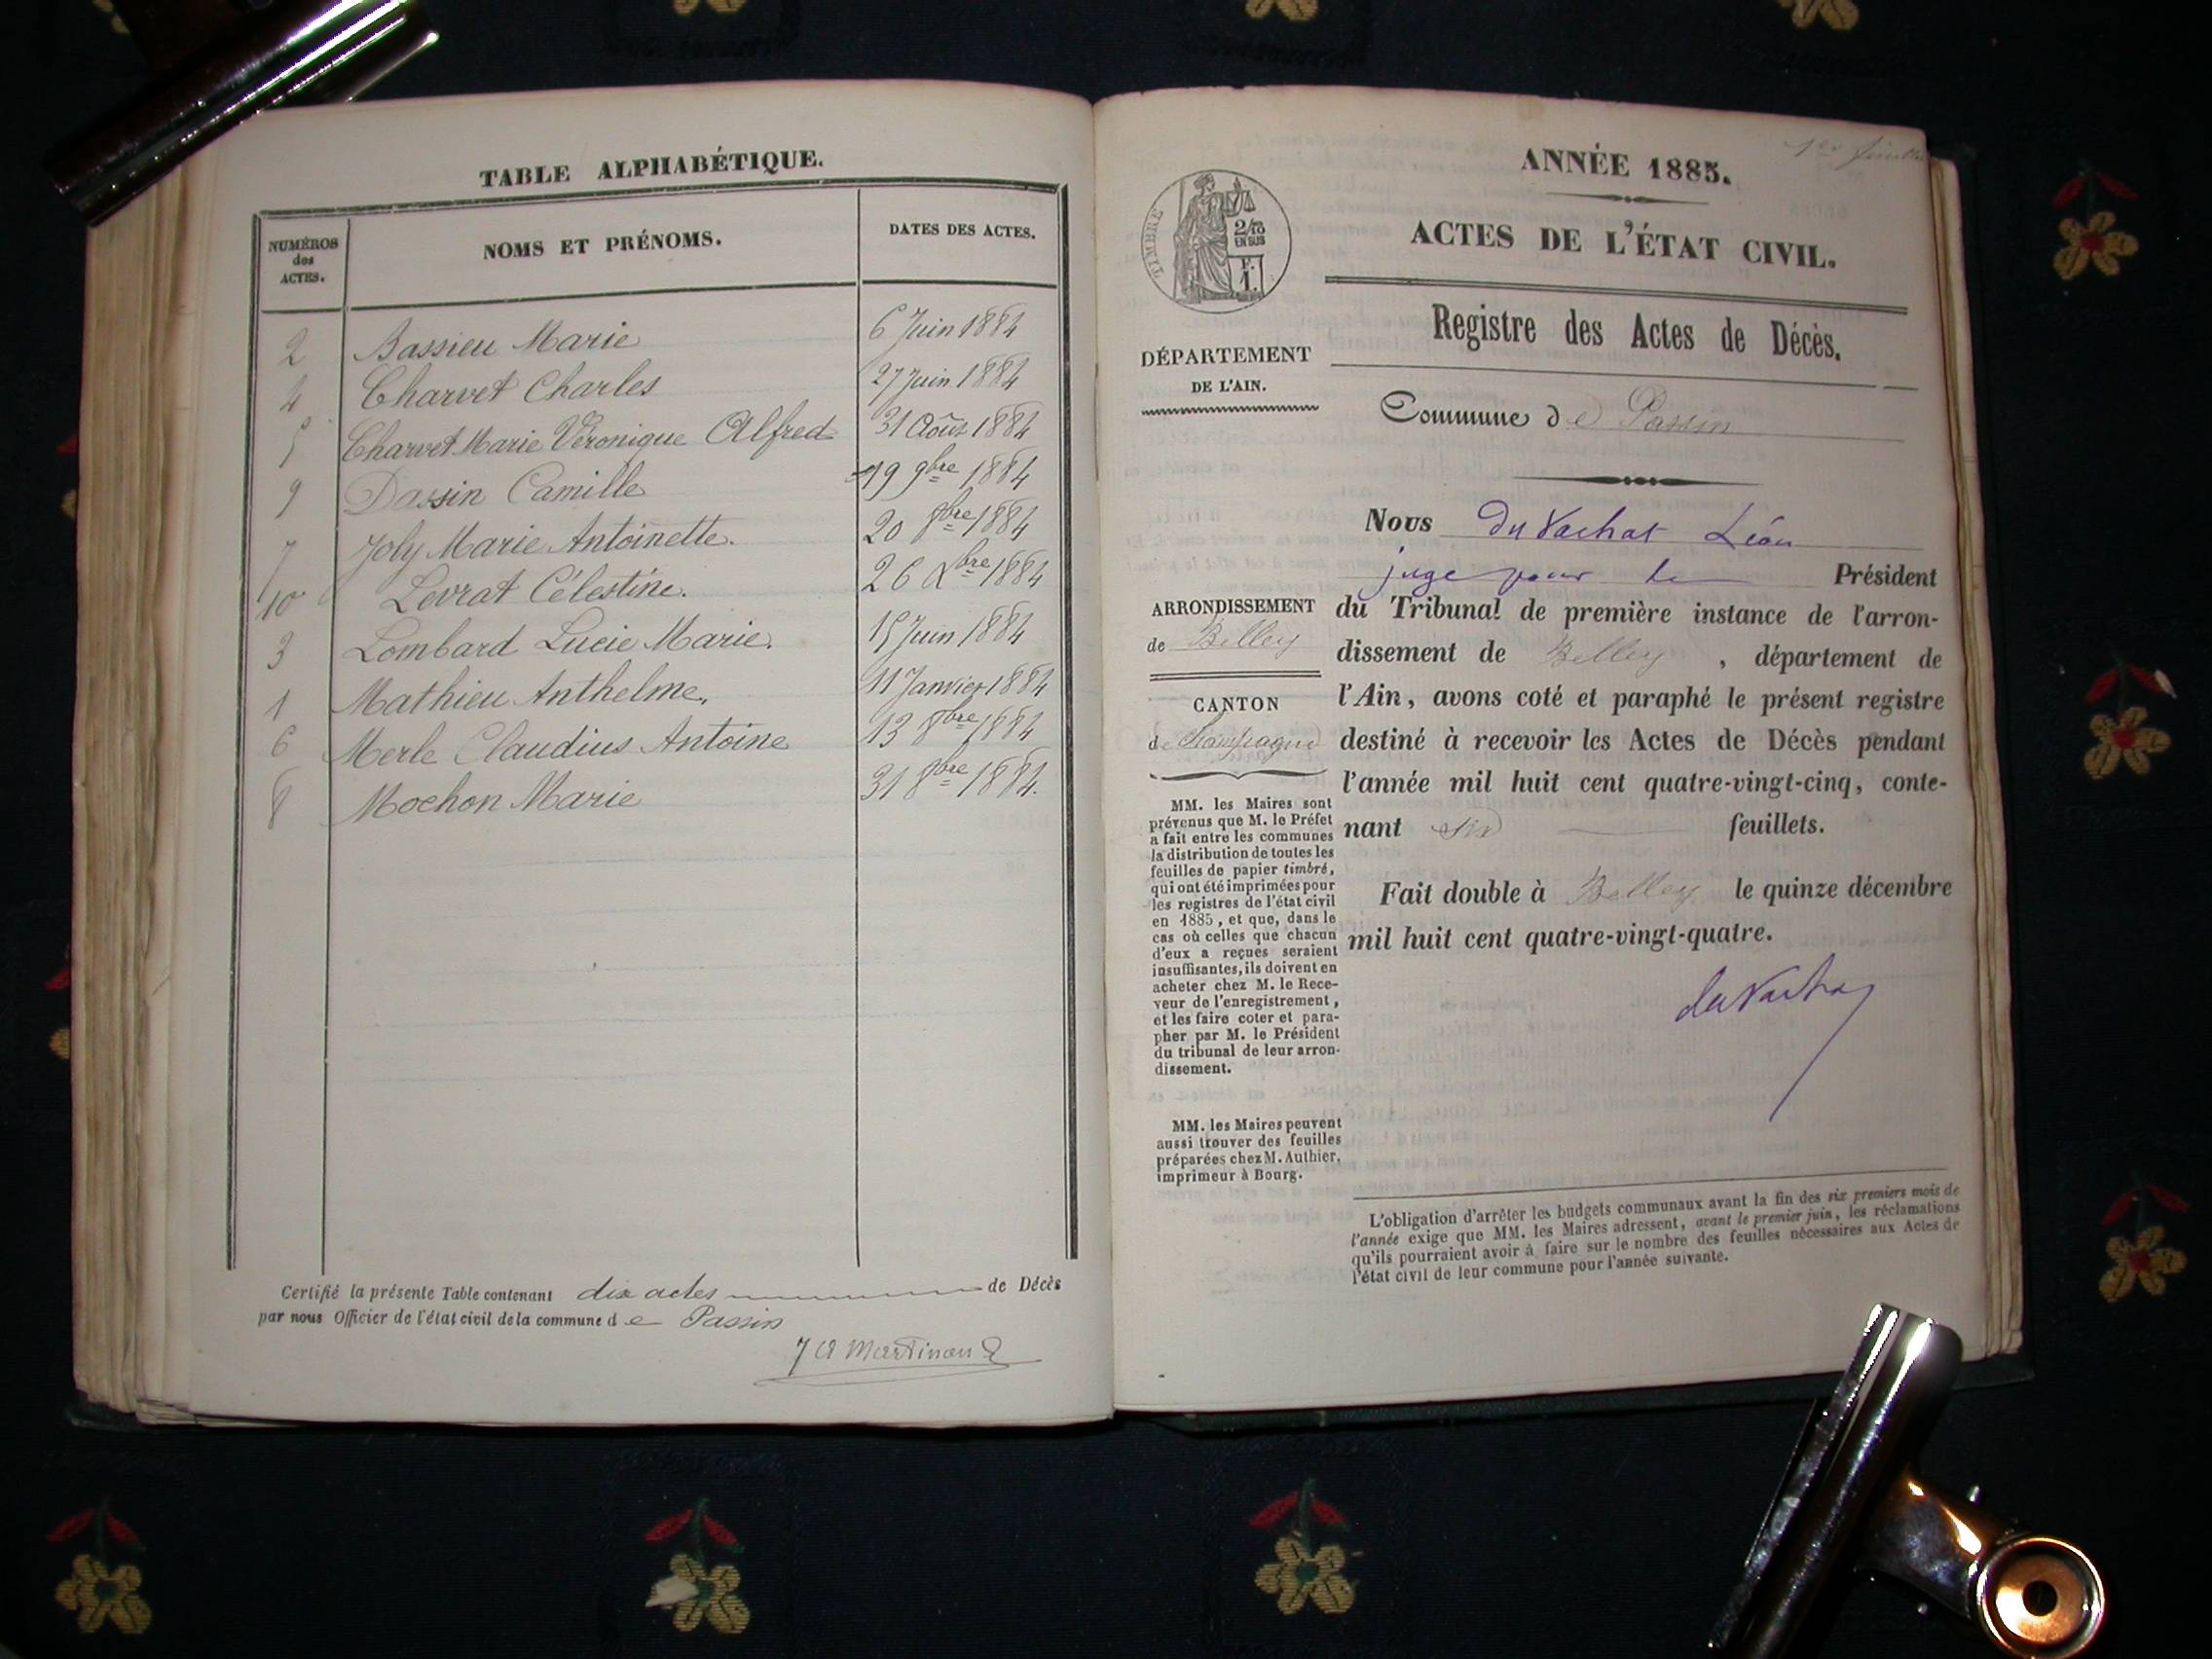 TABLE ALPHABÉTIQUE.
NUMÉROS
des
ACTES.
NOMS ET PRÉNOMS.
DATES DES ACTES.
2 Bassieu Marie 6 Juin 1884
4 Charvet Charles 27 Juin 1884
5 Charvet Marie Véronique Alfred 31 Août 1884
9 Dassin Camille 19 9bre 1884
7 Joly Marie Antoinette. 20 8bre 1884
10 Levrat Célestine. 26 Xbre 1884
3 Lombard Lucie Marie. 15 Juin 1884
1 Mathieu Anthelme. 11 Janvier 1884
6 Merle Claudius Antoine 13 8bre 1884
8 Mochon Marie 31 8bre 1884.
Certifié la présente Table contenant dix actes de Décès
par nous Officier de l'état civil de la commune de Passin
Martinand
1er feuillet
ANNÉE 1885.
ACTES DE L'ÉTAT CIVIL.
TIMBRE
2/10
EN SUS
F.
1.
Registre des Actes de Décès.
DÉPARTEMENT
DE L'AIN.
Commune de Passin
Nous du Vachat Léon
juge pour le Président
du Tribunal de première instance de l'arron-
dissement de Belley, département de
l'Ain, avons coté et paraphé le présent registre
destiné à recevoir les Actes de Décès pendant
l'année mil huit cent quatre-vingt-cinq, conte-
nant six feuillets.
Fait double à Belley le quinze décembre
mil huit cent quatre-vingt-quatre.
du Vachat
ARRONDISSEMENT
de Belley
CANTON
de Champagne
MM. les Maires sont
prévenus que M. le Préfet
a fait entre les communes
la distribution de toutes les
feuilles de papier timbré,
qui ont été imprimées pour
les registres de l'état civil
en 1885, et que, dans le
cas où celles que chacun
d'eux a reçues seraient
insuffisantes, ils doivent en
acheter chez M. le Rece-
veur de l'enregistrement,
et les faire coter et para-
pher par M. le Président
du tribunal de leur arron-
dissement.
MM. les Maires peuvent
aussi trouver des feuilles
préparées chez M. Authier,
imprimeur à Bourg.
L'obligation d'arrêter les budgets communaux avant la fin des six premiers mois de
l'année exige que MM. les Maires adressent, avant le premier juin, les réclamations
qu'ils pourraient avoir à faire sur le nombre des feuilles nécessaires aux Actes de
l'état civil de leur commune pour l'année suivante.